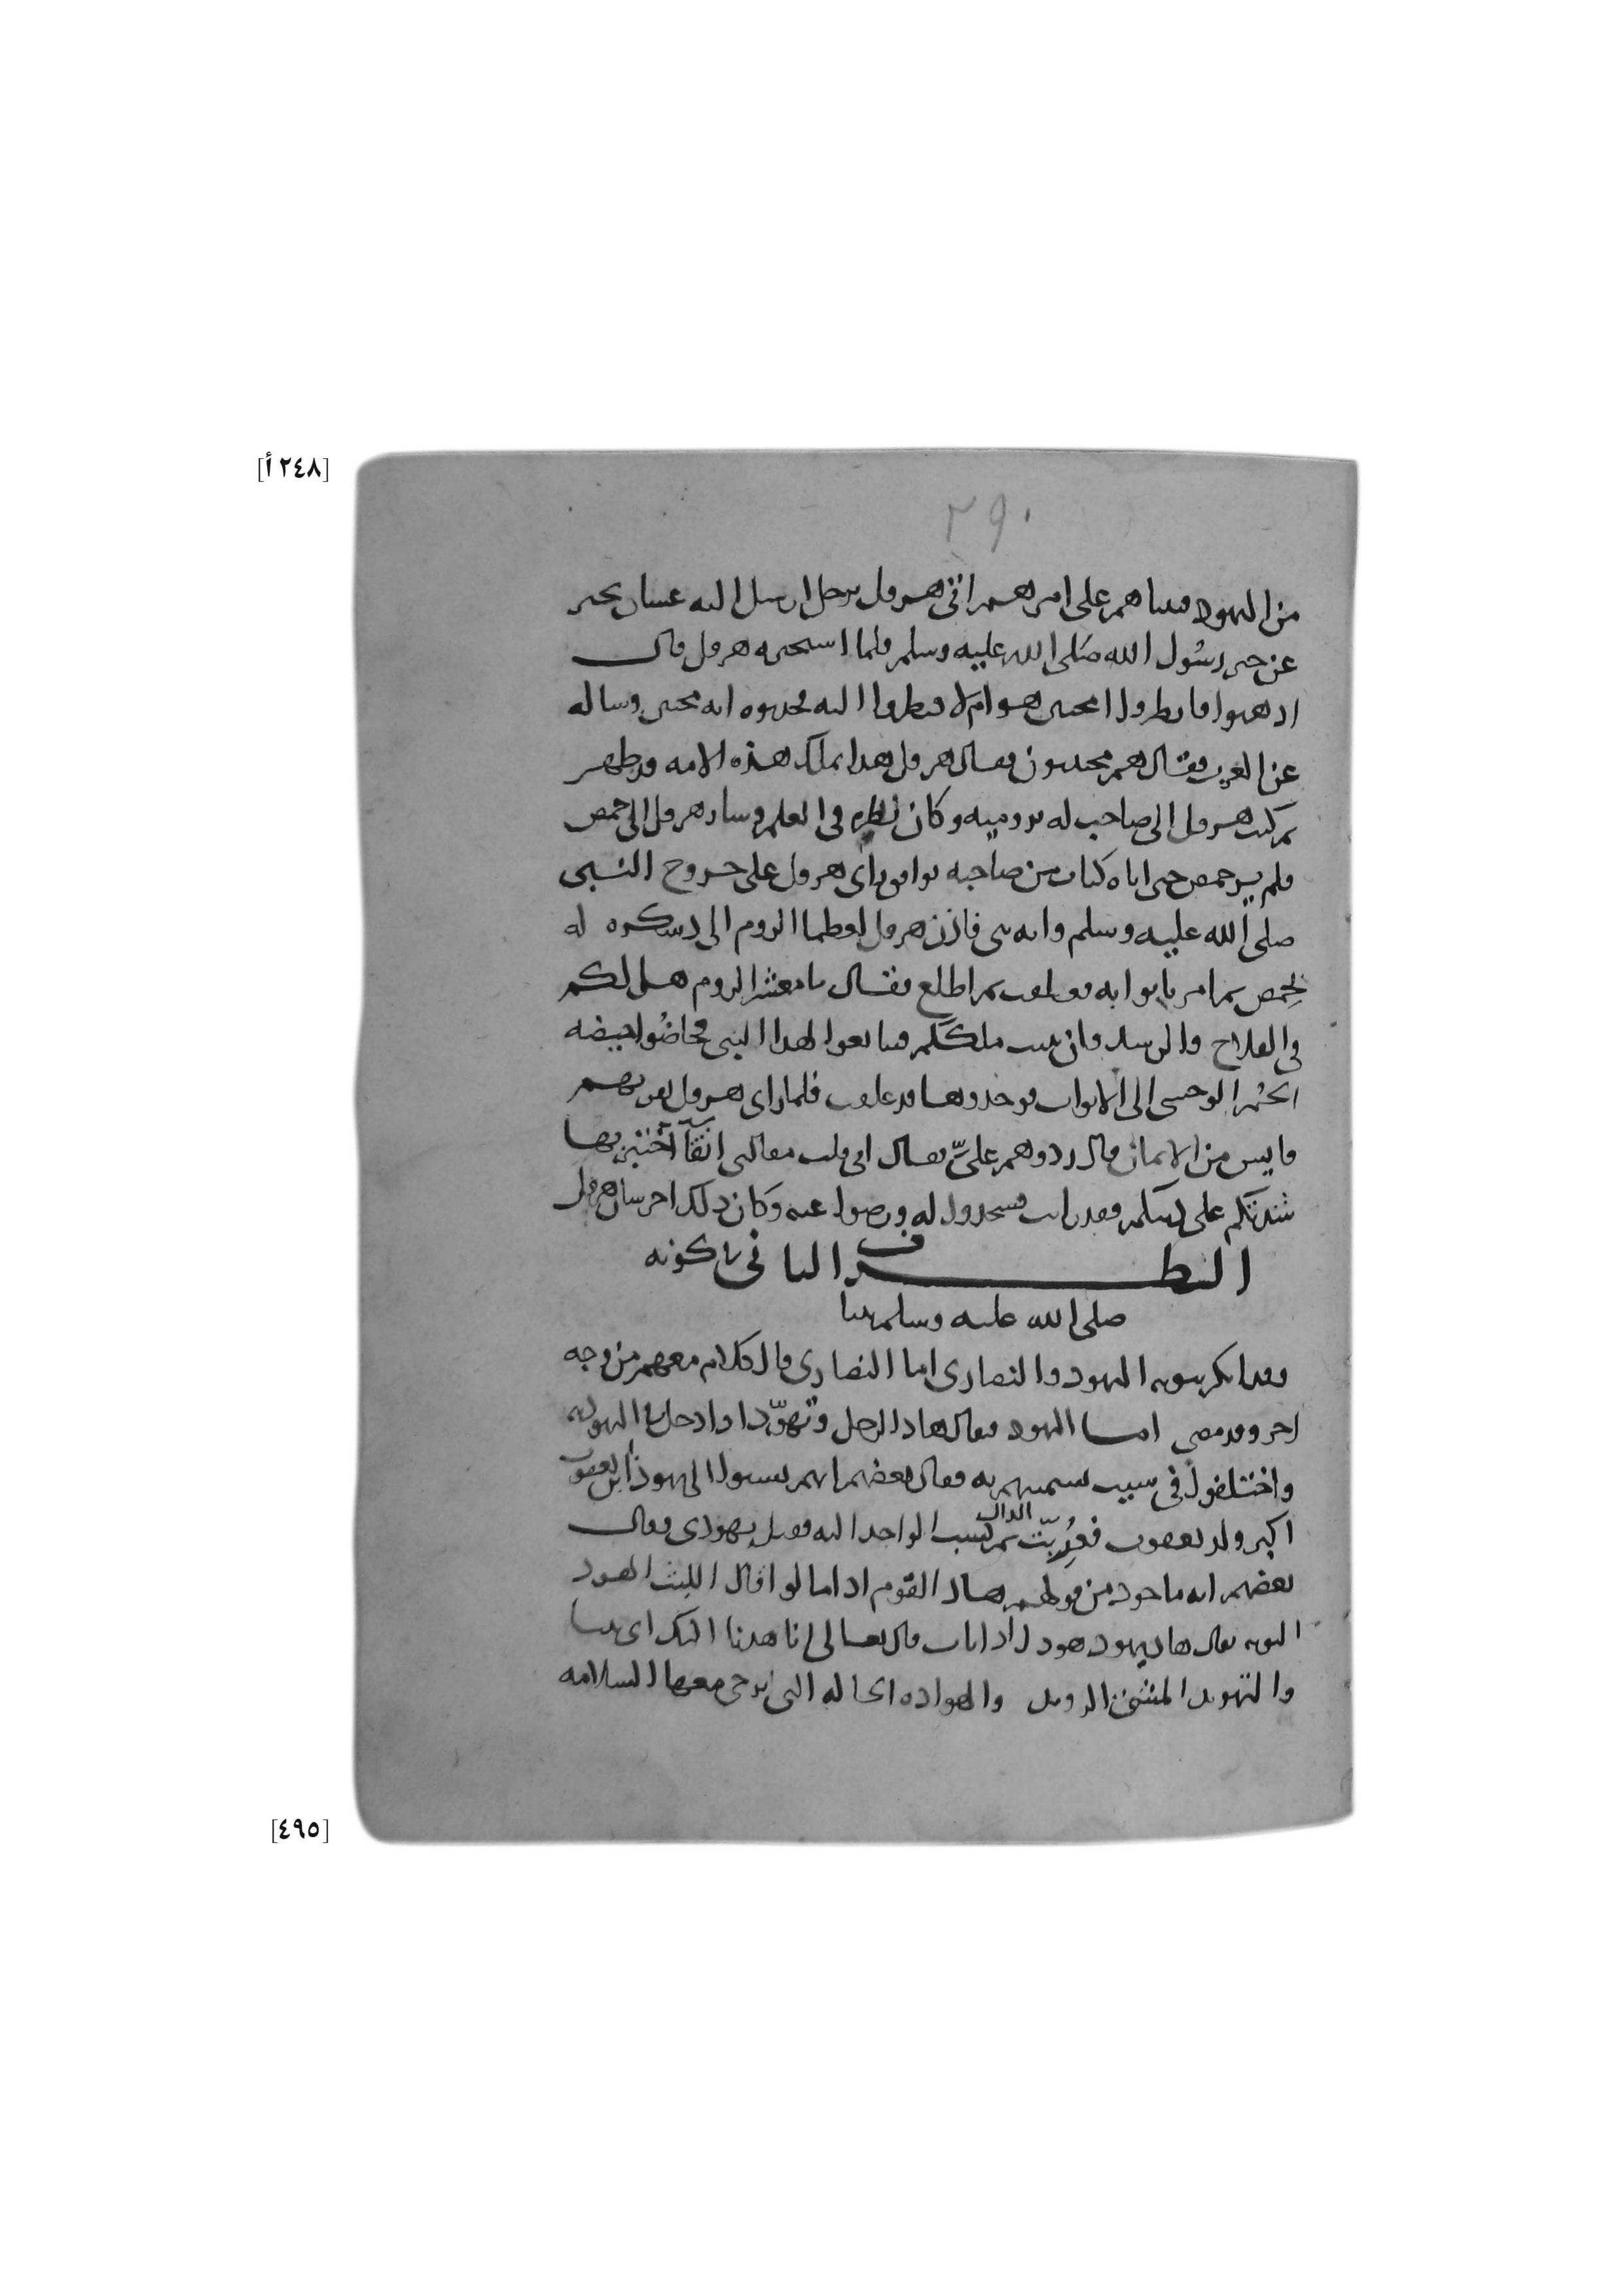 [٢٤٨ أ]
٢٩٠
من اليهود فبينا هم على امرهم اتى هرقل برجل ارسل اليه غسان يخبر
عن خبر رسول الله صلى الله عليه وسلم فلما استخبره هرقل قال
اذهبوا فانظروا امختتن هو ام لا فنظروا اليه فحدثوه انه مختتن وساله
عن العرب فقال هم يختتنون فقال هرقل هذا ملك هذه الامه قد ظهر
ثم كتب هرقل الى صاحب له بروميه وكان نظيره في العلم وسار هرقل الى حمص
فلم يرم حمص حتى اتاه كتاب من صاحبه يوافق راى هرقل على خروج النبي
صلى الله عليه وسلم وانه نبي فاذن هرقل لعظما الروم الى دسكره له
بحمص ثم امر بابوابه فغلقت ثم اطلع فقال يا معشر الروم هل لكم
في الفلاح والرشد وان يثبت ملككم فتبايعوا لهذا النبي فحاضوا حيضه
الحمر الوحش الى الابواب فوجدوها قد غلقت فلما راى هرقل نفرتهم
وايس من الايمان قال ردوهم عليّ فقال اني قلت مقالتي انفا اختبر بها
شدتكم على دينكم فقد رايت فسجدوا له ورضوا عنه وكان ذلك اخر شان هرقل
النظر الثاني في كونه
صلى الله عليه وسلم نبيا
وقد انكر نبوته اليهود والنصارى اما النصارى فالكلام معهم من وجه
اخر وقد مضى اما اليهود فيقال هاد الرجل وتهوّد اذا دخل في اليهوديه
واختلفوا في سبب تسميتهم به فقال بعضهم انهم نسبوا الى يهوذا بن يعقوب
اكبر ولد يعقوب فعُرِّبت الذال ثم نسب الواحد اليه فقيل يهودي وقال
بعضهم انه ماخوذ من قولهم هاد القوم اذا مالوا قال الليث الهود
التوبه يقال هاد يهود هودا اذا تاب قال تعالى انا هدنا اليك اى تبنا
والتهويد المشي الرويد والهواده الحاله التي ترجى معها السلامه
[٤٩٥]